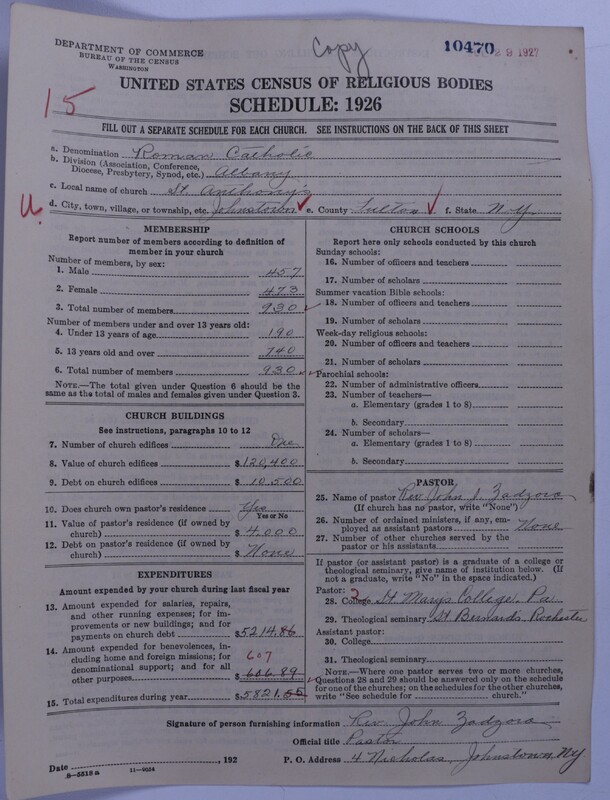 Copy
10470
DEPARTMENT OF COMMERCE
BUREAU OF THE CENSUS
WASHINGTON
29 1927
UNITED STATES CENSUS OF RELIGIOUS BODIES
SCHEDULE: 1926
15
FILL OUT A SEPARATE SCHEDULE FOR EACH CHURCH. SEE INSTRUCTIONS ON THE BACK OF THIS SHEET
a. Denomination Roman Catholic
b. Division (Association, Conference,
Diocese, Presbytery, Synod, etc.) Albany
c. Local name of church St. Anthony's
U. d. City, town, village, or township, etc. Johnstown e. County Fulton f. State N.Y.
MEMBERSHIP
Report number of members according to definition of
member in your church
Number of members, by sex:
1. Male 457
2. Female 473
3. Total number of members 930
Number of members under and over 13 years old:
4. Under 13 years of age 190
5. 13 years old and over 740
6. Total number of members 930
NOTE.—The total given under Question 6 should be the
same as the total of males and females given under Question 3.
CHURCH BUILDINGS
See instructions, paragraphs 10 to 12
7. Number of church edifices One
8. Value of church edifices $120,400
9. Debt on church edifices $10,500
10. Does church own pastor's residence Yes
Yes or No
11. Value of pastor's residence (if owned by
church) $4,000
12. Debt on pastor's residence (if owned by
church) $None
EXPENDITURES
Amount expended by your church during last fiscal year
13. Amount expended for salaries, repairs,
and other running expenses; for im-
provements or new buildings; and for
payments on church debt $5214.86
14. Amount expended for benevolences, in-
cluding home and foreign missions; for
denominational support; and for all
other purposes 607 $606.89
15. Total expenditures during year $5821.55
CHURCH SCHOOLS
Report here only schools conducted by this church
Sunday schools:
16. Number of officers and teachers
17. Number of scholars
Summer vacation Bible schools:
18. Number of officers and teachers
19. Number of scholars
Week-day religious schools:
20. Number of officers and teachers
21. Number of scholars
Parochial schools:
22. Number of administrative officers
23. Number of teachers—
a. Elementary (grades 1 to 8)
b. Secondary
24. Number of scholars—
a. Elementary (grades 1 to 8)
b. Secondary
PASTOR
25. Name of pastor Rev. John J. Zadzora
(If church has no pastor, write "None")
26. Number of ordained ministers, if any, em-
ployed as assistant pastors None
27. Number of other churches served by the
pastor or his assistants
If pastor (or assistant pastor) is a graduate of a college or
theological seminary, give name of institution below. (If
not a graduate, write "No" in the space indicated.)
Pastor:
28. College St Marys College, Pa
29. Theological seminary St Bernards, Rochester
Assistant pastor:
30. College
31. Theological seminary
NOTE.—Where one pastor serves two or more churches,
Questions 28 and 29 should be answered only on the schedule
for one of the churches; on the schedules for the other churches,
write "See schedule for church."
Signature of person furnishing information Rev. John Zadzora
Official title Pastor
Date , 192 P. O. Address 4 Nicholas, Johnstown, NY
8-5318a 11-9034